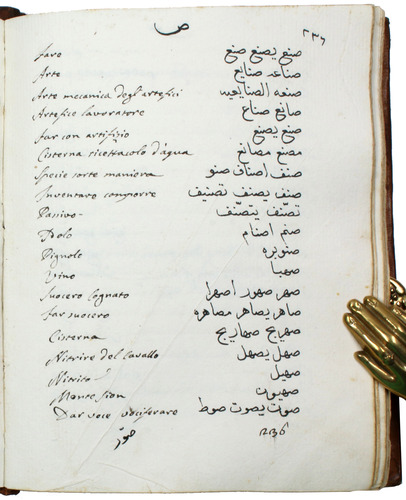 ص ٢٣٦
fare صنع يصنع صنع
Arte صناعه صنايع
Arte mecanica degl'artefici صنعه الصنايعيه
Artefice lavoratore صانع صناع
far con artifizio صنع يصنع
Cisterna ricettacolo d'aqua مصنع مصانع
Specie sorte maniera صنف اصناف صنو
Inventare comporre صنف يصنف تصنيف
Passivo- تصنّف يتصنّف
صنم اصنام
Pignolo صنوبره
Vino صهبا
Suocero Cognato صهر صهور اصهرا
far suocero صاهر يصاهر مصاهره
Cisterna صهريج صهاريج
Nitrire del Cavallo صهل يصهل
Nitrito صهيل
Monte Sion صهيون
Dar voce vociferare صوت يصوت صوط
236